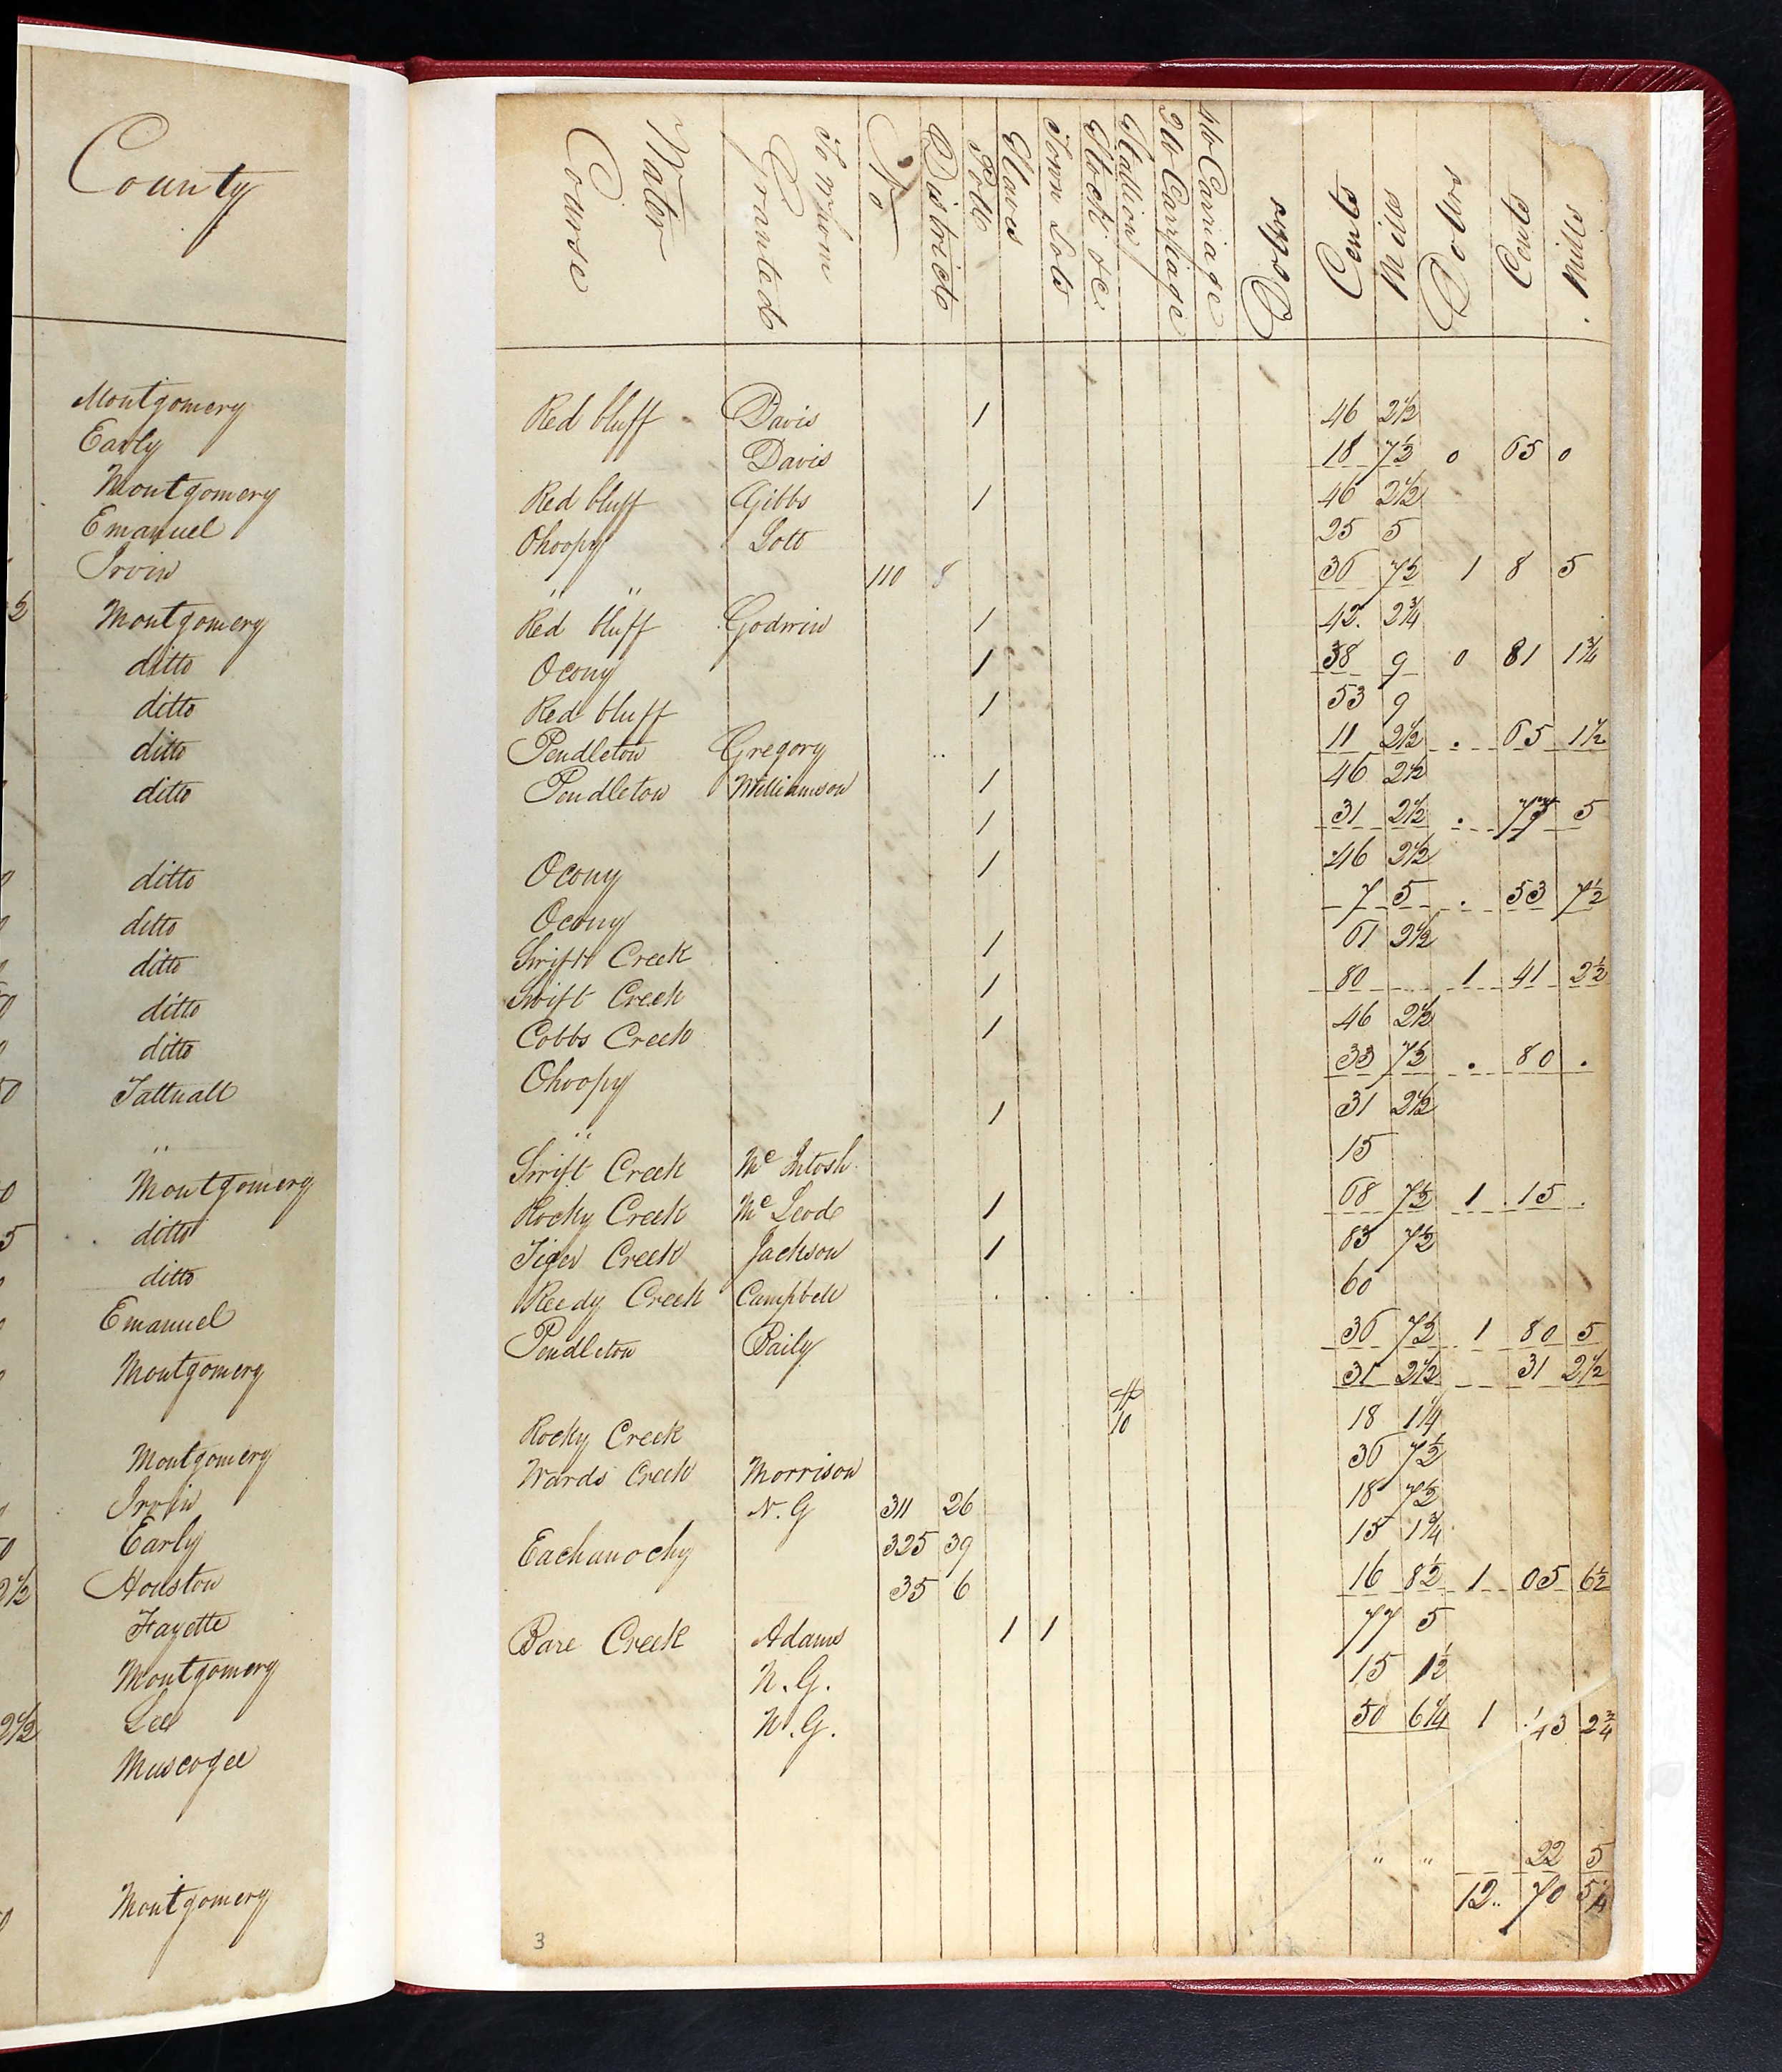 County
Montgomery
Early
Montgomery
Emanuel
Irvin
1/2 Montgomery
ditto
ditto
ditto
ditto
ditto
ditto
ditto
ditto
ditto
Tattnall
"
Montgomery
5 ditto
ditto
Emanuel
Montgomery
Montgomery
Irvin
Early
2 1/2 Houston
Fayette
Montgomery
2 1/2 Lee
Muscogee
Montgomery
Water Course To Whom Granted No Districts Poll Slaves Town Lots Stock &c Stallion 2 W Carriage 4 W Carriage Dollrs Cents Mills Dollrs Cents Mills
Red bluff Davis 1 46 2 1/2
Davis 18 7 1/2 0 65 0
Red bluff Gibbs 1 46 2 1/2
Ohoopy Lott 25 5
" " 110 8 36 7 1/2 1 8 5
Red bluff Godwin 1 42. 2 3/4
Ocony 1 38 9 0 81 1 3/4
Red bluff 1 53 9
Pendleton Gregory 11 2 1/2 . 65 1 1/2
Pendleton Williamson 1 46 2 1/2
1 31 2 1/2 . 77 5
Ocony 1 46 2 1/2
Ocony 7 5 . 53 7 1/2
Swift Creek 1 61 2 1/2
Swift Creek 1 80 1 41 2 1/2
Cobbs Creek 1 46 2 1/2
Ohoopy 33 7 1/2 . 80 .
" 1 31 2 1/2
Swift Creek Mc Intosh 15
Rocky Creek Mc Leod 1 68 7 1/2 1 15 .
Tiger Creek Jackson 1 83 7 1/2
Reedy Creek Campbell 60
Pendleton Baily 36 7 1/2 1 80 5
31 2 1/2 31 2 1/2
Rocky Creek 10 18 1 1/4
Wards Creek Morrison 36 7 1/2
N. G 311 26 18 7 1/2
Eachanochy 325 39 15 1 3/4
35 6 16 8 1/2 1 05 6 1/2
Bare Creek Adams 1 1 77 5
N. G. 15 1 1/2
N. G. 50 6 1/4 1 43 2 3/4
" " 22 5
12.. 70 5 1/4
3